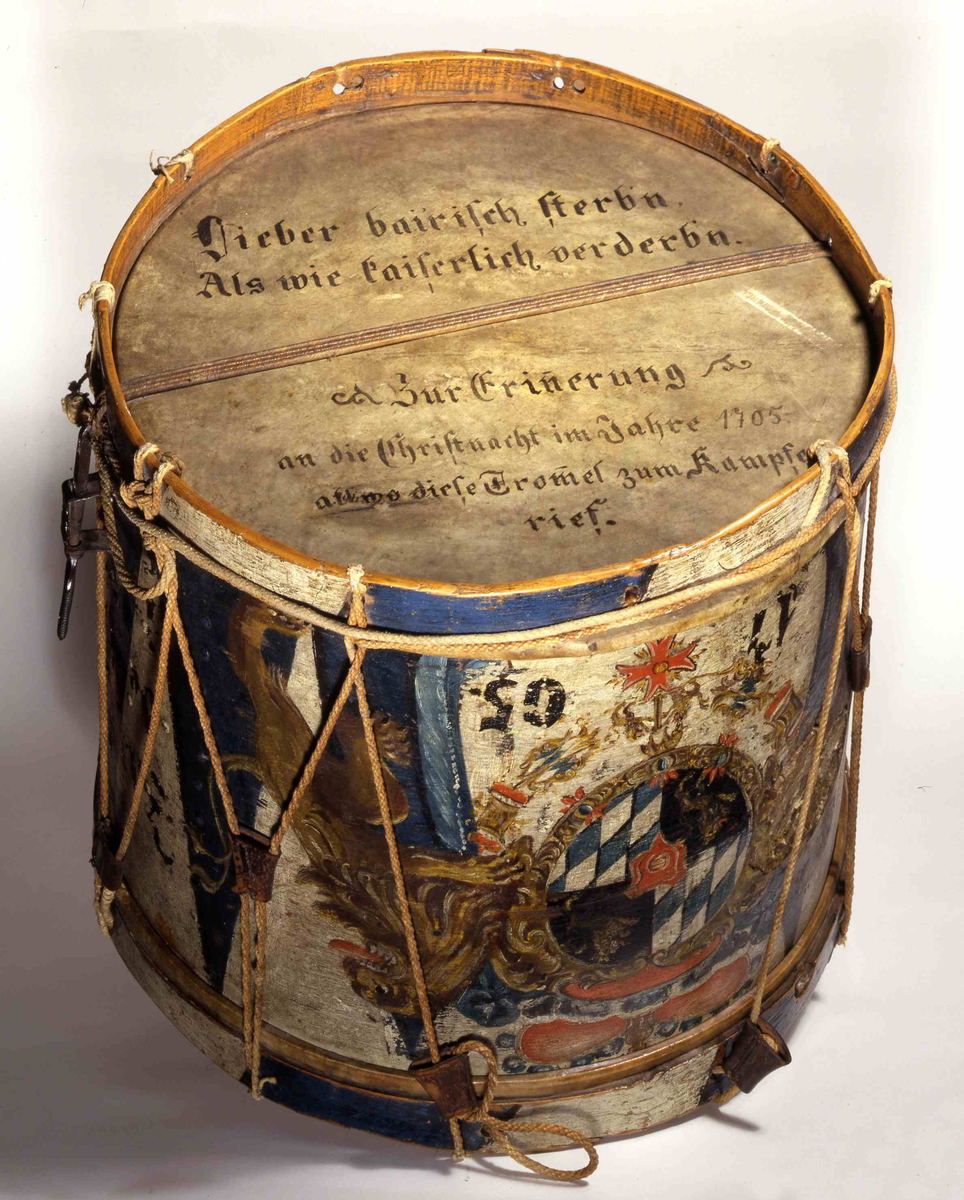 Lieber bairisch sterb̄n.
Als wie kaiserlich verderb̄n.
Zur Erin̄erung
an die Christnacht im Jahre 1705.
allwo diese Trom̄el zum Kampfe
rief.